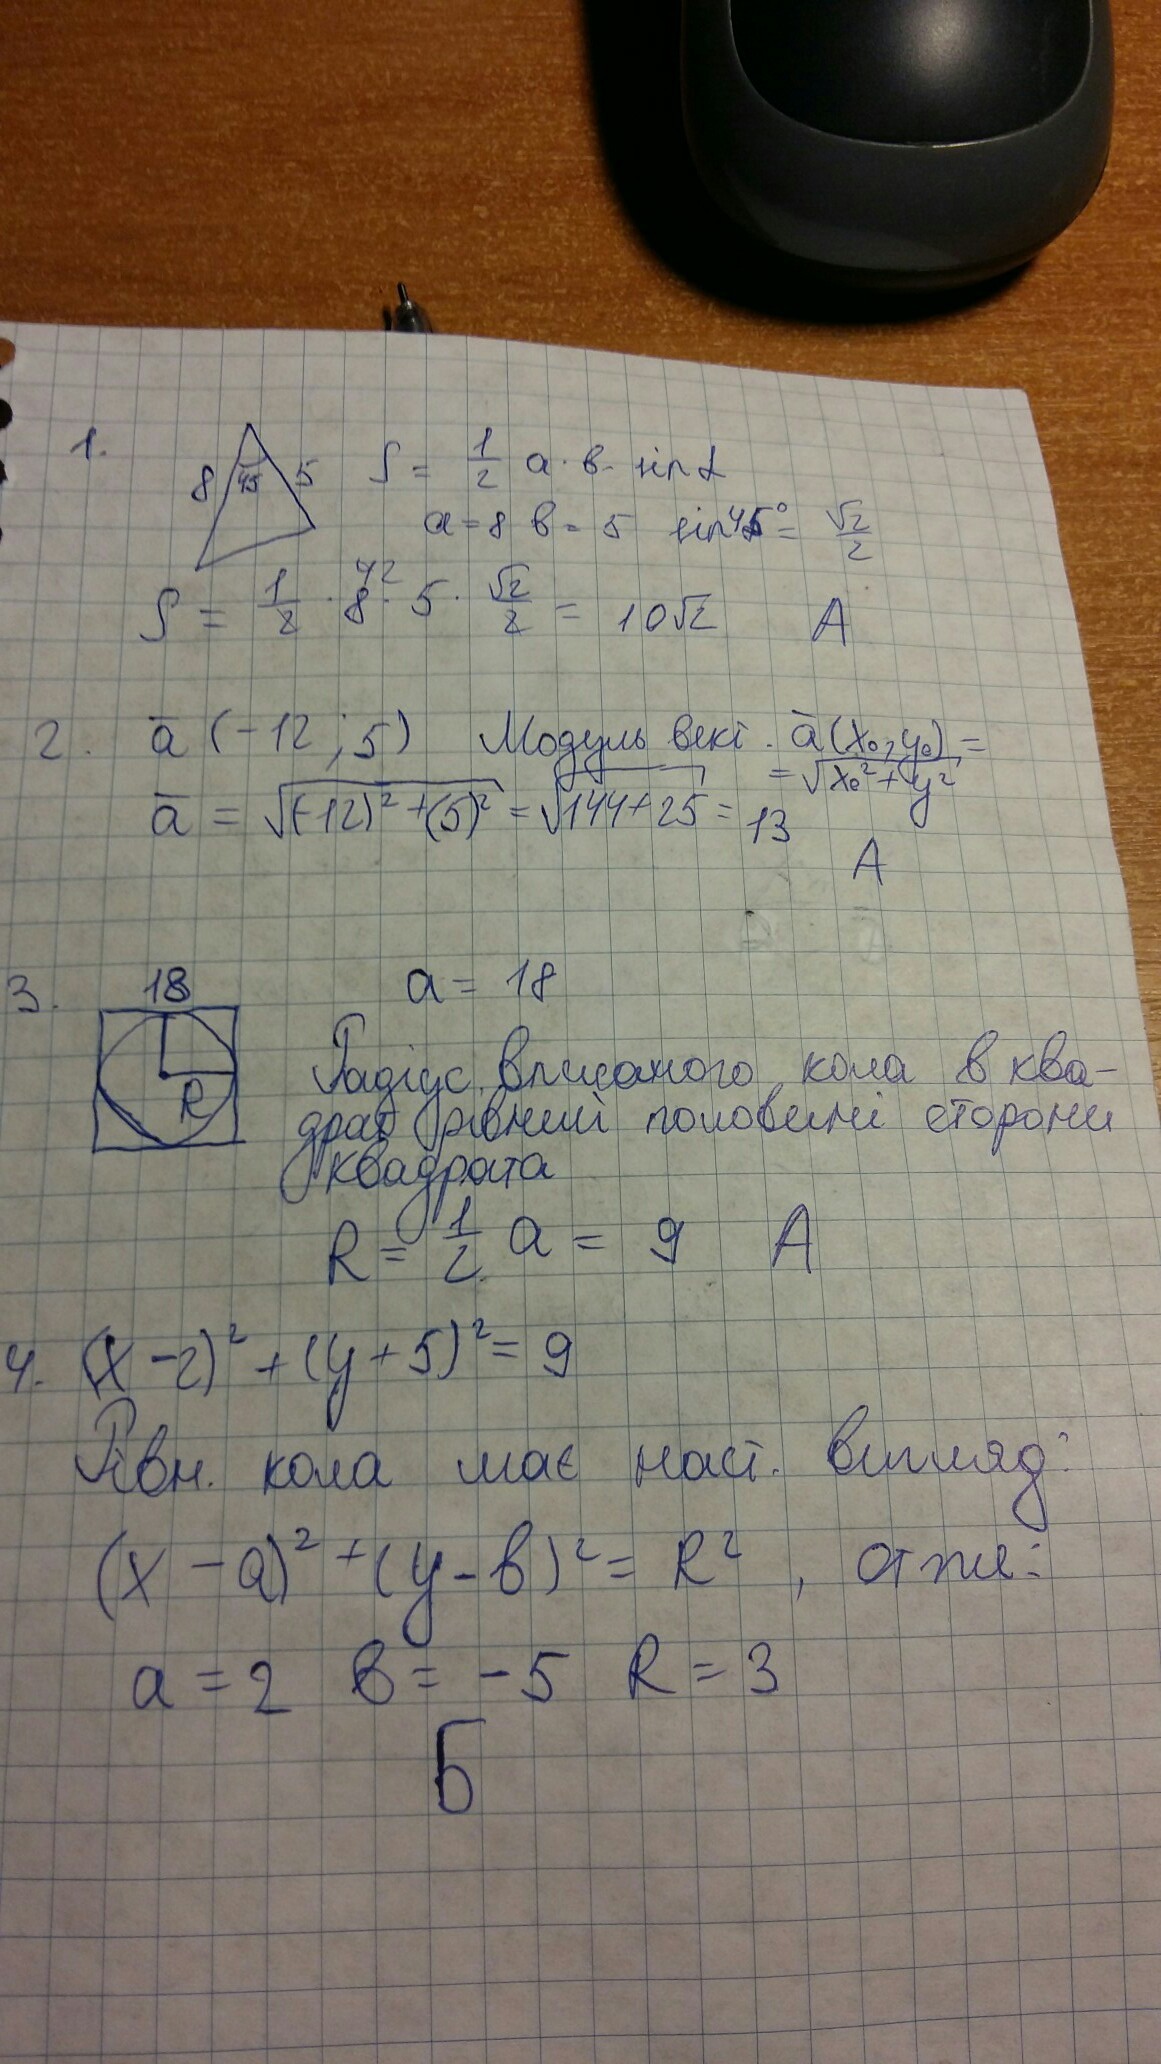 1. 8 45 5 S = 1/2 a · b · sin α
a = 8 b = 5 sin 45° = √2/2
S = 1/2 · 8 · 5 · √2/2 = 10√2 А
2. a̅ (-12; 5) Модуль вект. a̅ (x₀, y₀) =
= √x₀² + y²
a̅ = √(-12)² + (5)² = √144 + 25 = 13
А
3. 18 a = 18
R Радіус вписаного кола в ква-
драт рівний половині сторони
квадрата
R = 1/2 a = 9 А
4. (x - 2)² + (y + 5)² = 9
Рівн. кола має наст. вигляд:
(x - a)² + (y - b)² = R², отже:
a = 2 b = -5 R = 3
Б